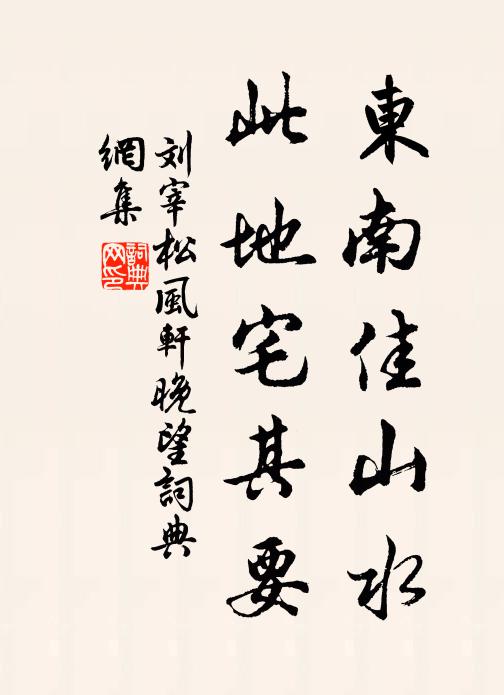 東南佳山水
此地宅其要
刘宰松風軒晚望詞典
網集
詞典網印